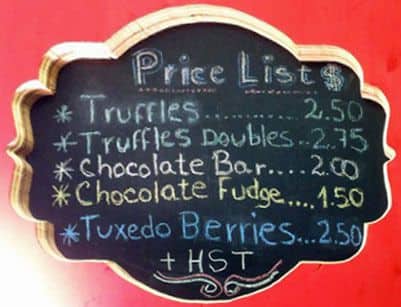 Price List $
* Truffles.......... 2.50
* Truffles Doubles..2.75
* Chocolate Bar.... 2.00
* Chocolate Fudge.... 1.50
* Tuxedo Berries...2.50
+ HST